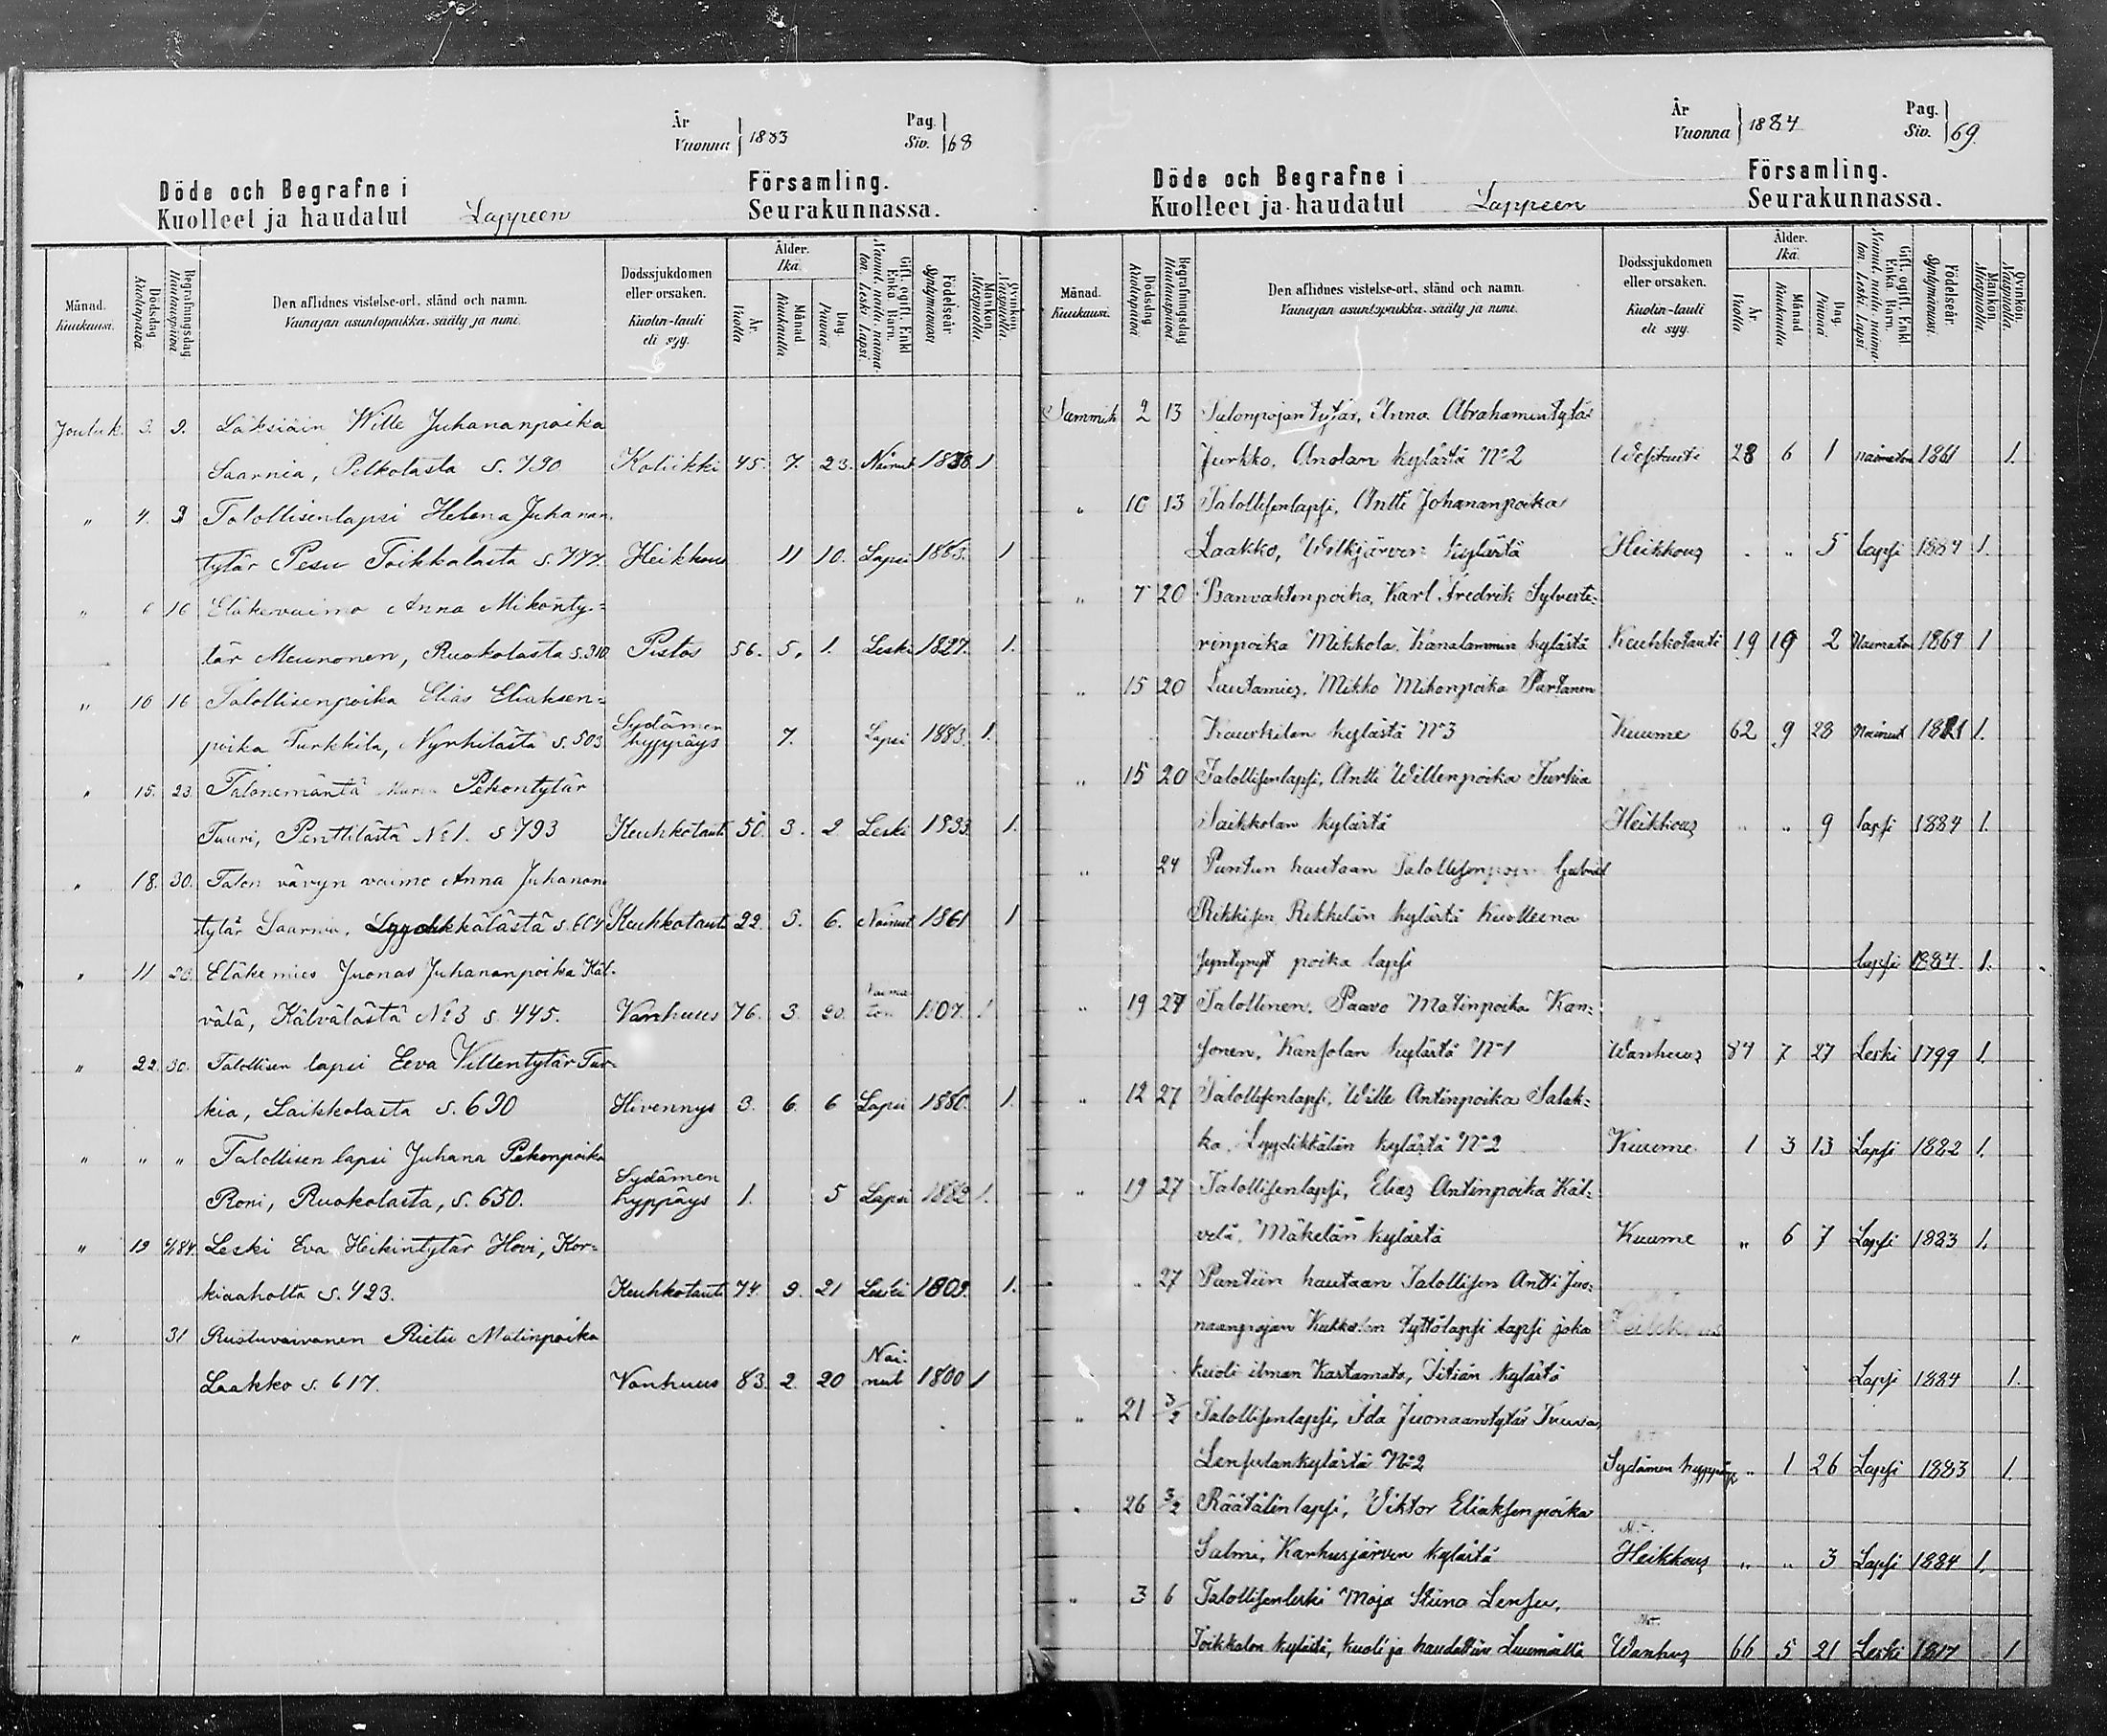 År
Vuonna } 1883
Pag.
Siv. } 68
Döde och Begrafne i
Kuolleet ja haudatut
Lappeen
Församling.
Seurakunnassa.
Månad.
Kuukausi.
Dödsdag
Kuolinpäivä
Begrafningsdag
Hautauspäivä
Den aflidnes vistelse-ort, stånd och namn.
Vainajan asuntopaikka, sääty ja nimi.
Dödssjukdomen
eller orsaken.
Kuolin-tauti
eli syy.
Ålder.
Ikä.
År.
Vuotta
Månad
Kuukautta
Dag.
Päivää
Gift, ogift, Enkl
Enka Barn.
Nainut, naimaton, Leski, Lapsi.
Födelseår
Syntymävuosi
Mankön
Miespuolta
Qvinkön
Vaipuolta
Jouluk. 3. 9. Läksiäin Wille Juhananpoika
Saarnia, Pelkolasta s. 790 Kolikki 45. 7. 23. Nainut 1838. 1
" 4. 9 Talollisenlapsi Helena Juhanan
tytär Pesu Toikkalasta s. 777. Heikkous 11 10. Lapsi 1883. 1
" 6 16 Eläkevaimo Anna Mikonty=
tär Meunonen, Ruokolasta s. 310. Pistos 56. 5. 1. Leski 1827. 1.
" 10 16 Talollisenpoika Elias Eliaksen=
poika Turkkila, Nyrhilästä s. 503 Sydämen hyppäys 7. Lapsi 1883. 1.
" 15. 23. Talonemäntä Maria Pekontytär
Tuuri, Penttilästä No 1. s 793 Keuhkotauti 50. 3. 2 Leski 1833. 1.
" 18. 30. Talon vävyn vaimo Anna Juhanan
tytär Saarnia, Lyydikkälästä s. 604 Keuhkotauti 22. 5. 6. Nainut 1861 1
" 11 23. Eläkemies Juonas Juhananpoika Käl-
välä, Kälvälästä No 3 s. 445. Vanhuus 76. 3. 20. Naimaton 1807. 1
" 22. 30. Talollisen lapsi Eeva Villentytär Tur-
kia, Saikkolasta s. 690 Hivennys 3. 6. 6 Lapsi 1880. 1.
" " " Talollisen lapsi Juhana Pekonpoika
Roni, Ruokolasta, s. 650. Sydämen hyppäys 1. 5 Lapsi 1882 1.
" 19 6/1 84. Leski Eva Heikintytär Hovi, Kor-
kiaaholta s. 423. Keuhkotauti 74. 9. 21 Leski 1809. 1.
" 31 Rustuvaivanen Rietu Matinpoika
Laakko s. 617. Vanhuus 83. 2. 20 Nainut 1800 1
År
Vuonna } 1884
Pag.
Siv. } 69.
Döde och Begrafne i
Kuolleet ja haudatut
Lappeen
Församling.
Seurakunnassa.
Månad.
Kuukausi.
Dödsdag
Kuolinpäivä
Begrafningsdag
Hautauspäivä
Den aflidnes vistelse-ort, stånd och namn.
Vainajan asuntopaikka, sääty ja nimi.
Dödssjukdomen
eller orsaken.
Kuolin-tauti
eli syy.
Ålder.
Ikä.
År.
Vuotta
Månad
Kuukautta
Dag.
Päivää
Gift, ogift, Enkl
Enka Barn.
Nainut, naimaton, Leski, Lapsi.
Födelseår.
Syntymävuosi.
Mankön.
Miespuolta.
Qvinkön.
Vaipuolta.
Tammik 2 13 Talonpojan tytär, Anna Abrahamintytär
Jurkko, Anolan kylästä No 2 Wesitauti 23 6 1 naimaton 1861 1.
" 10 13 Talollisenlapsi, Antti Johananpoika
Laakko, Wilkjärven kylästä Heikkous " " 5 lapsi 1884 1.
" 7 20 Banvaktenpoika, Karl Fredrik Sylveste-
rinpoika Mikkola, Kanalammin kylästä Keuhkotauti 19 10 2 Naimaton 1864 1
" 15 20 Lautamies, Mikko Mikonpoika Partanen
Kauskilan kylästä No 3 Kuume 62 9 28 Nainut 1821 1.
" 15 20 Talollisenlapsi, Antti Willenpoika Turkia
Saikkolan kylästä Heikkous " " 9 lapsi 1884 1.
" 24 Pantun hautaan Talollisenpojan Gabriel
Rikkisen Rikkilän kylästä Kuolleena
syntynyt poika lapsi lapsi 1884 1.
" 19 27 Talollinen, Paavo Matinpoika Kan=
sonen, Kansolan kylästä No 1 Wanhuus 84 7 27 Leski 1799 1.
" 12 27 Talollisenlapsi, Wille Antinpoika Salak=
ka, Lyydikkälän kylästä No 2 Kuume 1 3 13 Lapsi 1882 1.
" 19 27 Talollisenlapsi, Elias Antinpoika Käl=
velä, Mäkelän kylästä Kuume " 6 7 Lapsi 1883 1.
" " 27 Pantiin hautaan Talollisen Antti Juo=
naanpojan Kukkolan tyttölapsi lapsi joka
kuoli ilman Kastamata, Iitiän kylästä Lapsi 1884 1.
" 21 3/2 Talollisenlapsi, Ida Juonaantytär Tuuva,
Lensulankylästä No 2 Sydämen hyppäys " 1 26 Lapsi 1883 1.
" 26 3/2 Räätälinlapsi, Viktor Eliaksenpoika
Salmi, Karhusjärven kylästä Heikkous " " 3 Lapsi 1884 1.
" 3 6 Talollisenleski Maja Stiina Lensu,
Toikkalan kylästä, kuoli ja haudattiin Luumäellä Wanhus 66 5 21 Leski 1817 1